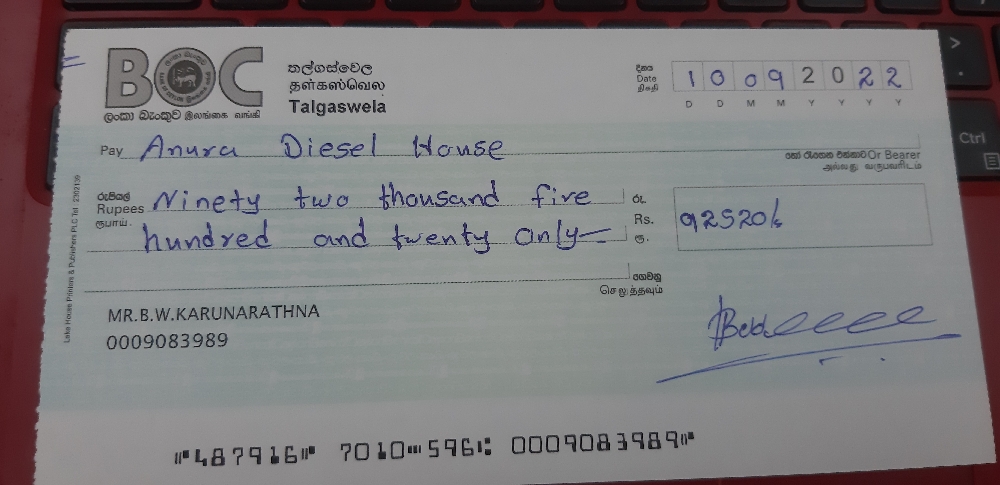 BOC
ලංකා බැංකුව இலங்கை வங்கி
තල්ගස්වෙල
தள்கஸ்வெல
Talgaswela
දිනය
Date
திகதி
1 0 0 9 2 0 2 2
D D M M Y Y Y Y
Pay Anura Diesel House
හෝ රැගෙන එන්නාට Or Bearer
அல்லது வருபவரிடம்
රුපියල්
Rupees Ninety two thousand five
ரூபாய்
hundred and twenty only
රු.
Rs. 92520/=
ரூ.
ගෙවනු
செலுத்தவும்
MR.B.W.KARUNARATHNA
0009083989
Lake House Printers & Publishers PLC Tel : 2302139
⑈487916⑈ 7010⑉596⑆ 0009083989⑈
Ctrl